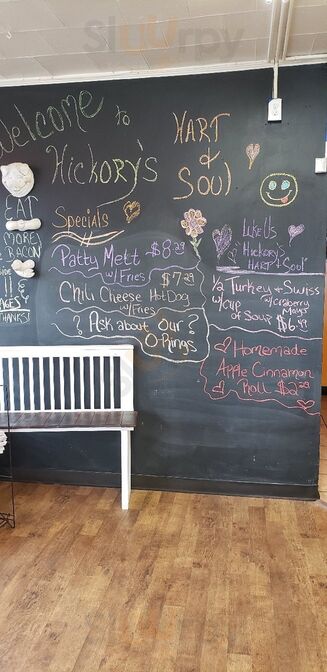 Welcome to
Hickory's
HART
&
Soul
EAT
MORE
BACON
Specials
Patty Mett $8.29
w/ Fries
Chili Cheese Hot Dog $7.29
w/ Fries
? Ask about Our ?
O-Rings
Like Us
"Hickory's
HART & Soul"
1/2 Turkey & Swiss
w/ Cranberry
Mayo
w/ Cup
of Soup $6.99
Homemade
Apple Cinnamon
Roll $2.29
THANKS!